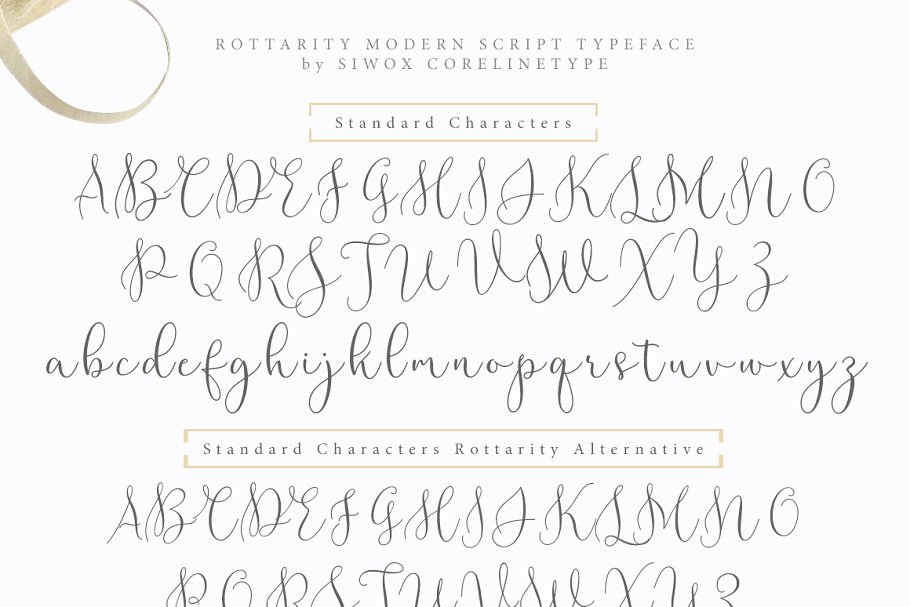 ROTTARITY MODERN SCRIPT TYPEFACE
by SIWOX CORELINETYPE
Standard Characters
A B C D E F G H I J K L M N O
P Q R S T U V W X Y Z
a b c d e f g h i j k l m n o p q r s t u v w x y z
Standard Characters Rottarity Alternative
A B C D E F G H I J K L M N O
P Q R S T U V W X Y Z